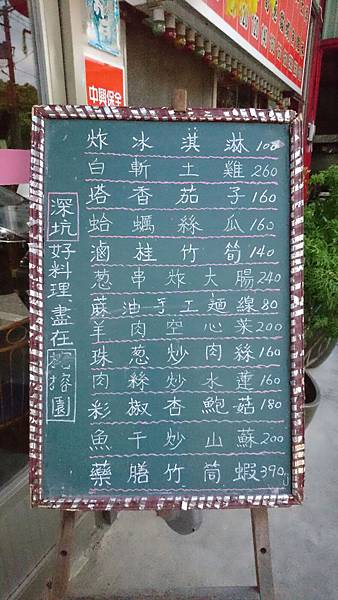 中興保全
炸冰淇淋100
白斬土雞260
塔香茄子160
蛤蠣絲瓜160
滷桂竹筍140
葱串炸大腸240
蔴油手工麵線80
羊肉空心菜200
珠葱炒肉絲160
肉絲炒水蓮160
彩椒杏鮑菇180
魚干炒山蘇200
藥膳竹筒蝦390
深坑好料理、盡在榕園